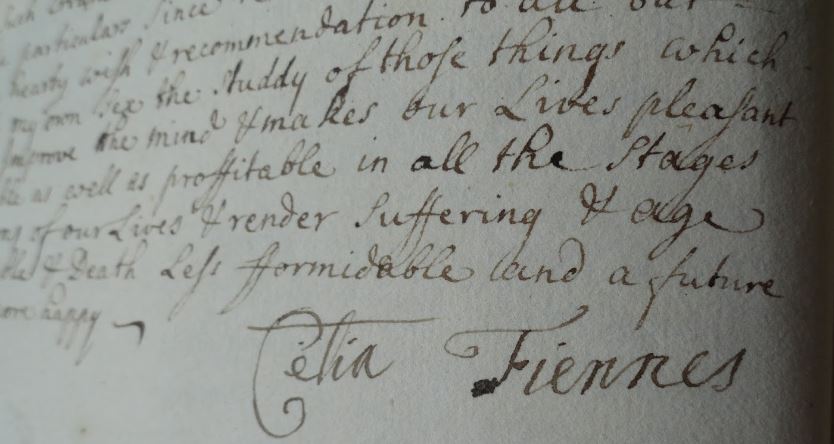 particulars since
hearty wish & recommendation to all our
my own Sex the studdy of those things which
Improve the mind & makes our Lives pleasant
as well as proffitable in all the Stages
of our Lives & render Suffering & age
& Death Less fformidable and a future
happy
Celia Fiennes